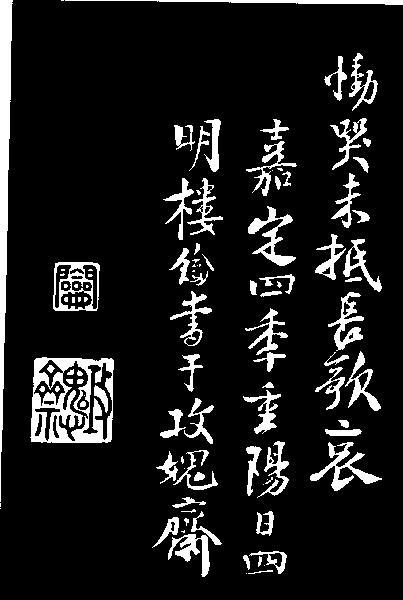 慟哭未抵長歌哀
嘉定四秊重陽日四
明樓鑰書于攻媿齋
攻媿齋